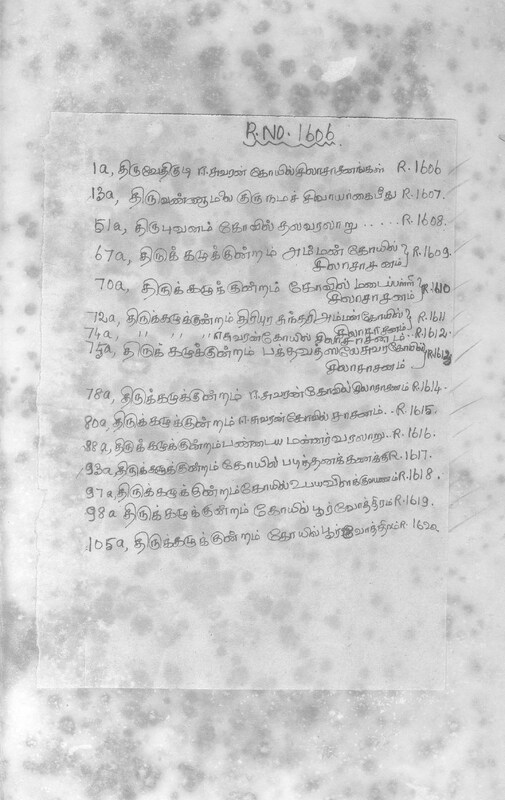 R.NO. 1606.
1a, திருவேதிகுடி ஈசுவரன் கோயில் சிலாசாசனங்கள் R.1606
13a, திருவண்ணாமலை குருநமச்சிவாயர் R.1607.
51a, திருபுவனம் கோவில் தலவரலாறு ..... R.1608.
67a, திருக் கழுக்குன்றம் அம்மன் கோயில் } R.1609.
சிலாசாசனம்
70a, திருக் கழுக்குன்றம் கோவில் மடைப்பள்ளி } R.1610
சிலாசாசனம்
72a, திருக்கழுக்குன்றம் திரிபுர சுந்தரி அம்மன்கோயில் } R.1611
சிலாசாசனம்
74a, " " " ஈசுவரன்கோயில் சிலாசாசனம் .. R.1612.
75a, திருக் கழுக்குன்றம் பக்தவத்ஸலேசுவரகோவில் } R.1613
சிலாசாசனம்
78a, திருக்கழுக்குன்றம் ஈசுவரன்கோவில் சிலாசாசனம் R.1614.
80a, திருக்கழுக்குன்றம் ஈசுவரன்கோவில் சாசனம் .. R.1615.
88a, திருக்கழுக்குன்றம் பண்டைய மன்னர் வரலாறு .. R.1616.
93a, திருக்கழுக்குன்றம் கோயில் படித்தனக்கணக்கு R.1617.
97a, திருக்கழுக்குன்றம் கோயில் உபய R.1618.
98a திருக் கழுக்குன்றம் கோயில் பூர்வோத்திரம் R.1619.
105a, திருக்கழுக்குன்றம் கோயில் பூர்வோத்திரம் R.1620